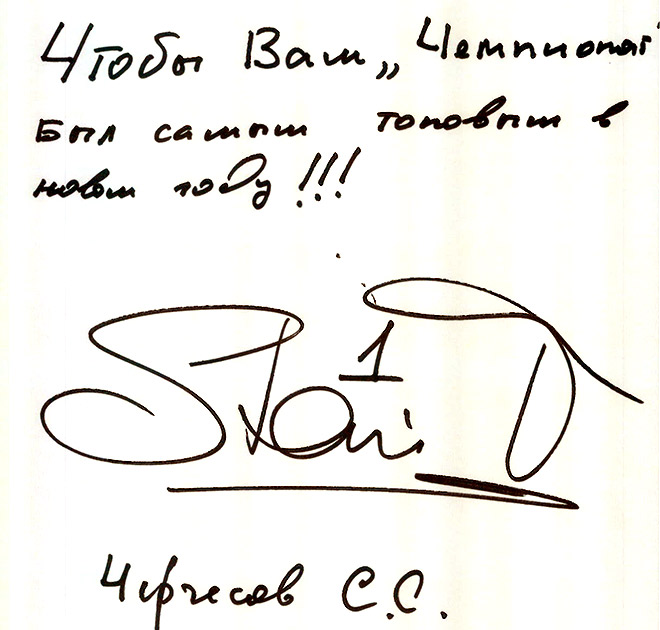 Чтобы Вам „Чемпионат
Был самым топовым в
новом году!!!
1
Черчесов С.С.